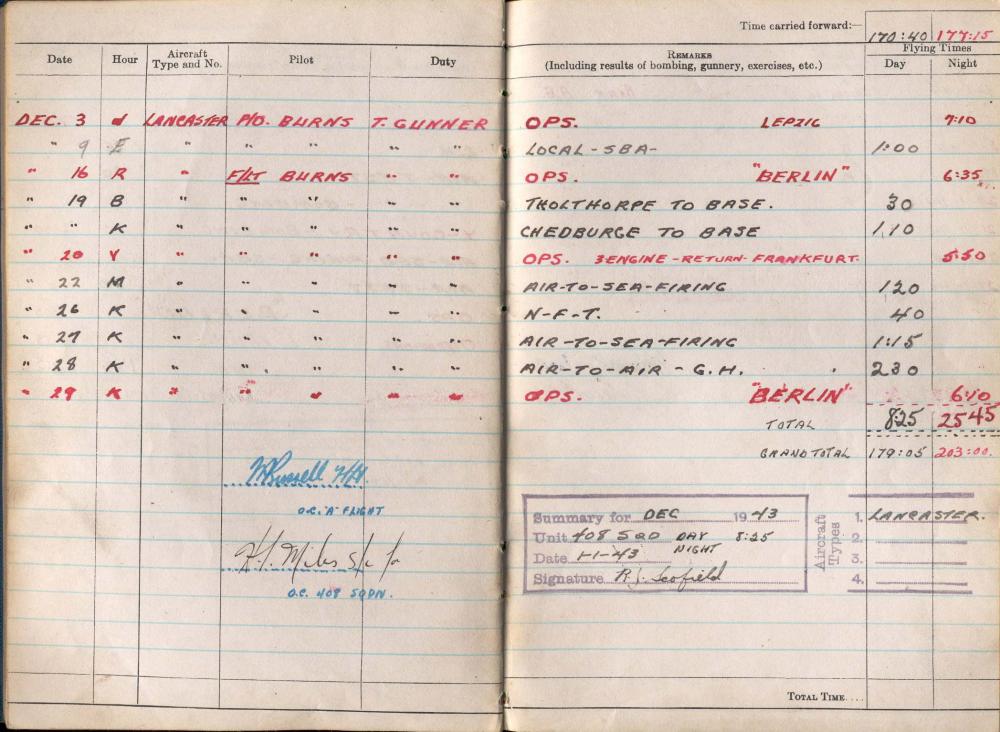 Time carried forward:— 170:40 177:15
Date Hour Aircraft Type and No. Pilot Duty REMARKS (Including results of bombing, gunnery, exercises, etc.) Flying Times Day Night
DEC. 3 J LANCASTER P/O. BURNS T. GUNNER OPS. LEPZIG 7:10
" 9 E " " " " " LOCAL-SBA- 1:00
" 16 R " F/LT BURNS " " OPS. "BERLIN" 6:35
" 19 B " " " " " THOLTHORPE TO BASE. 30
" " K " " " " " CHEDBURGE TO BASE 1.10
" 20 Y " " " " " OPS. 3ENGINE-RETURN-FRANKFURT. 5:50
" 22 M " " " " " AIR-TO-SEA-FIRING 1:20
" 26 K " " " " " N-F-T. 40
" 27 K " " " " " AIR-TO-SEA-FIRING 1:15
" 28 K " " " " " AIR-TO-AIR - G.H. 230
" 29 K " " " " " OPS. "BERLIN" 6:10
TOTAL 8:25 25 45
GRAND TOTAL 179:05 203:00.
Russell F/Lt.
O.C. "A" FLIGHT
Miles S/L for
O.C. 408 SQDN.
Summary for DEC 1943
Unit 408 SQD DAY 8:25
Date 1-1-43 NIGHT
Signature R.J. Scofield
Aircraft Types
1. LANCASTER.
2.
3.
4.
TOTAL TIME....